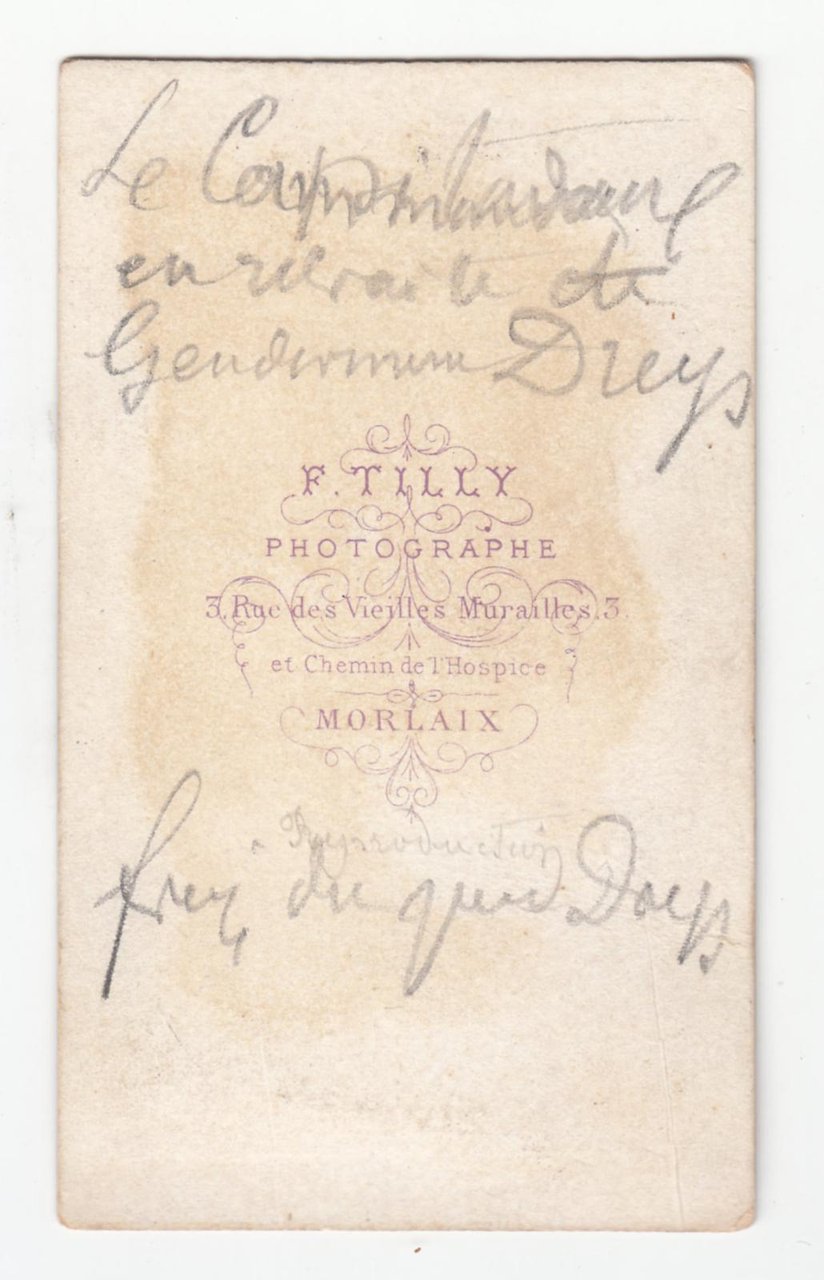 Le Commandant
en retraite de
Gendarmerie Dreys
F. TILLY
PHOTOGRAPHE
3. Rue des Vieilles Murailles. 3
et Chemin de l'Hospice
MORLAIX
Reproduction
du Dreys